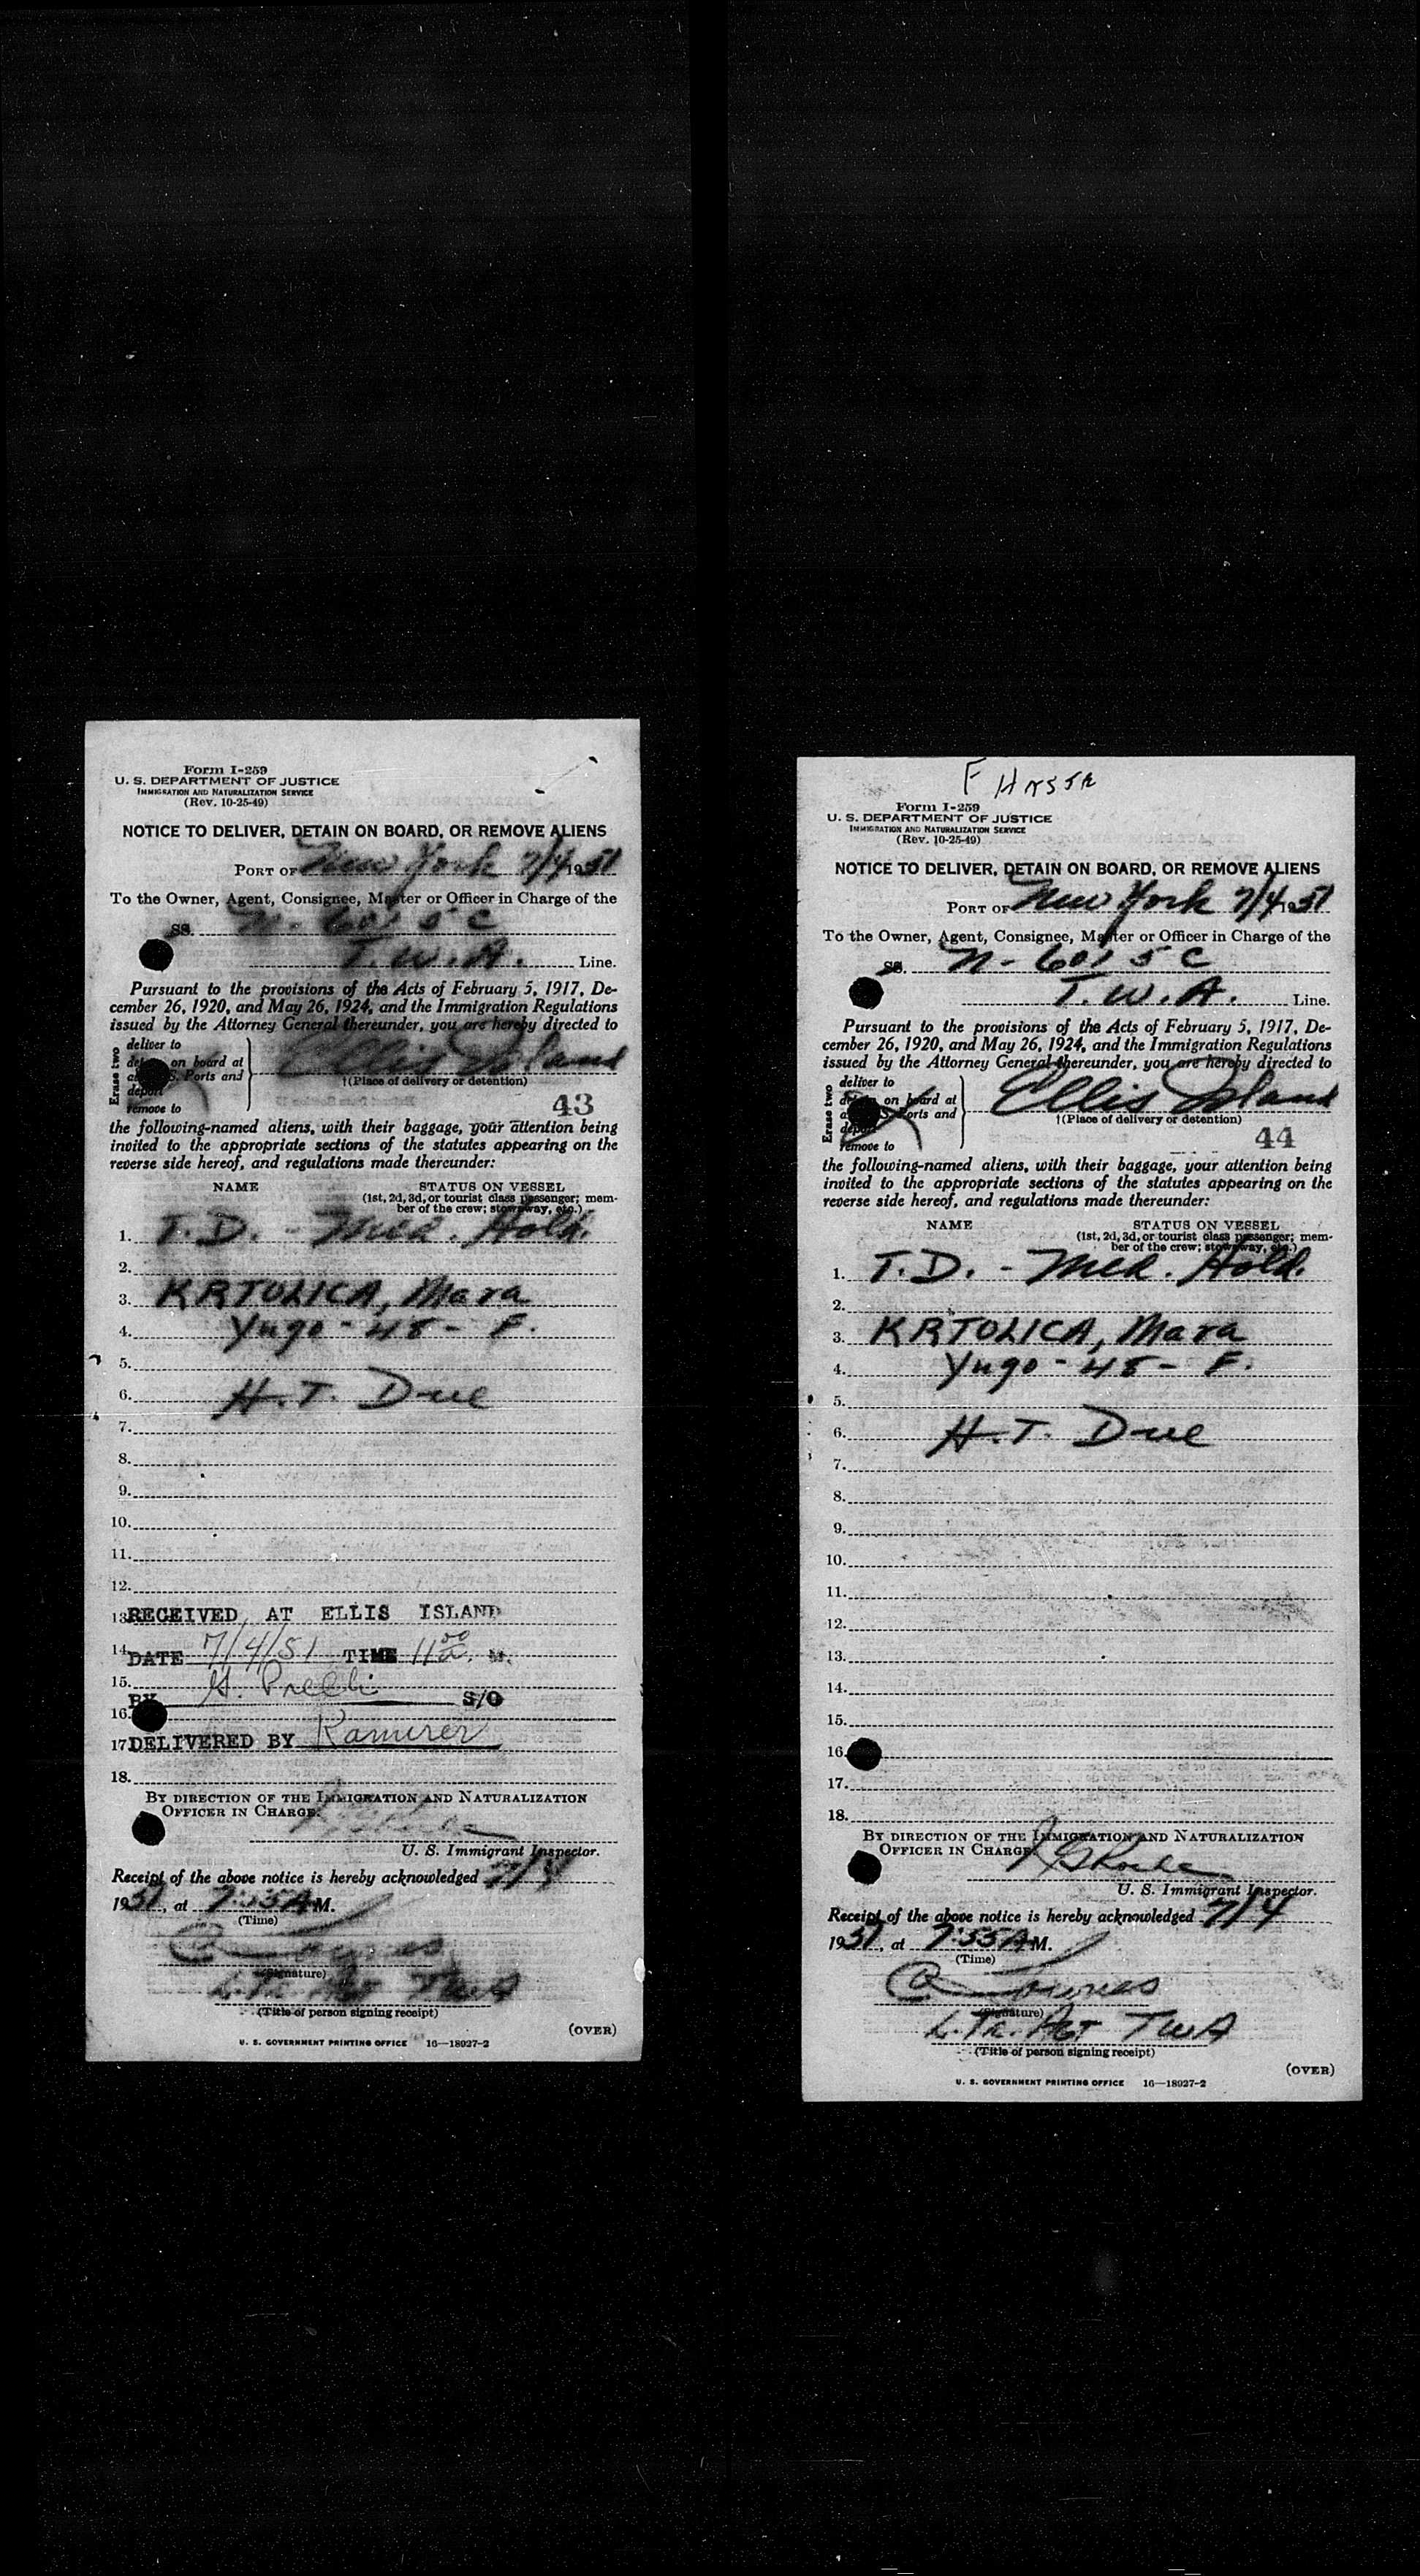 Form I-259
U. S. DEPARTMENT OF JUSTICE
IMMIGRATION AND NATURALIZATION SERVICE
(Rev. 10-25-49)
NOTICE TO DELIVER, DETAIN ON BOARD, OR REMOVE ALIENS
PORT OF New York 7/4 1951
To the Owner, Agent, Consignee, Master or Officer in Charge of the
SS. N-6015C
T.W.A. Line.
Pursuant to the provisions of the Acts of February 5, 1917, De-
cember 26, 1920, and May 26, 1924, and the Immigration Regulations
issued by the Attorney General thereunder, you are hereby directed to
Erase two
deliver to
on board at
Ports and
remove to
Ellis Island
†(Place of delivery or detention)
43
the following-named aliens, with their baggage, your attention being
invited to the appropriate sections of the statutes appearing on the
reverse side hereof, and regulations made thereunder:
NAME STATUS ON VESSEL
(1st, 2d, 3d, or tourist class passenger; mem-
ber of the crew; stowaway, etc.)
1. T.D. - Med. Hold.
2.
3. KRTOLICA, Mara
4. Yugo - 48 - F.
5.
6. H.T. Due
7.
8.
9.
10.
11.
12.
13. RECEIVED AT ELLIS ISLAND
14. DATE 7/4/51 TIME 11 00 a. M.
15.
BY G. S/O
16.
17. DELIVERED BY Ramirez
18.
BY DIRECTION OF THE IMMIGRATION AND NATURALIZATION
OFFICER IN CHARGE.
U. S. Immigrant Inspector.
Receipt of the above notice is hereby acknowledged 7/4
1951, at 7:55 A M.
(Time)
(Signature)
L. Tr. Agt TWA
(Title of person signing receipt)
(OVER)
U. S. GOVERNMENT PRINTING OFFICE 16—18927-2
F
Form I-259
U. S. DEPARTMENT OF JUSTICE
IMMIGRATION AND NATURALIZATION SERVICE
(Rev. 10-25-49)
NOTICE TO DELIVER, DETAIN ON BOARD, OR REMOVE ALIENS
PORT OF New York 7/4 1951
To the Owner, Agent, Consignee, Master or Officer in Charge of the
SS. N-6015C
T.W.A. Line.
Pursuant to the provisions of the Acts of February 5, 1917, De-
cember 26, 1920, and May 26, 1924, and the Immigration Regulations
issued by the Attorney General thereunder, you are hereby directed to
Erase two
deliver to
on board at
Ports and
remove to
Ellis Island
†(Place of delivery or detention)
44
the following-named aliens, with their baggage, your attention being
invited to the appropriate sections of the statutes appearing on the
reverse side hereof, and regulations made thereunder:
NAME STATUS ON VESSEL
(1st, 2d, 3d, or tourist class passenger; mem-
ber of the crew; stowaway, etc.)
1. T.D. - Med. Hold.
2.
3. KRTOLICA, Mara
4. Yugo - 48 - F.
5.
6. H.T. Due
7.
8.
9.
10.
11.
12.
13.
14.
15.
16.
17.
18.
BY DIRECTION OF THE IMMIGRATION AND NATURALIZATION
OFFICER IN CHARGE.
U. S. Immigrant Inspector.
Receipt of the above notice is hereby acknowledged 7/4
1951, at 7:55 A M.
(Time)
(Signature)
L. Tr. Agt TWA
(Title of person signing receipt)
(OVER)
U. S. GOVERNMENT PRINTING OFFICE 16—18927-2